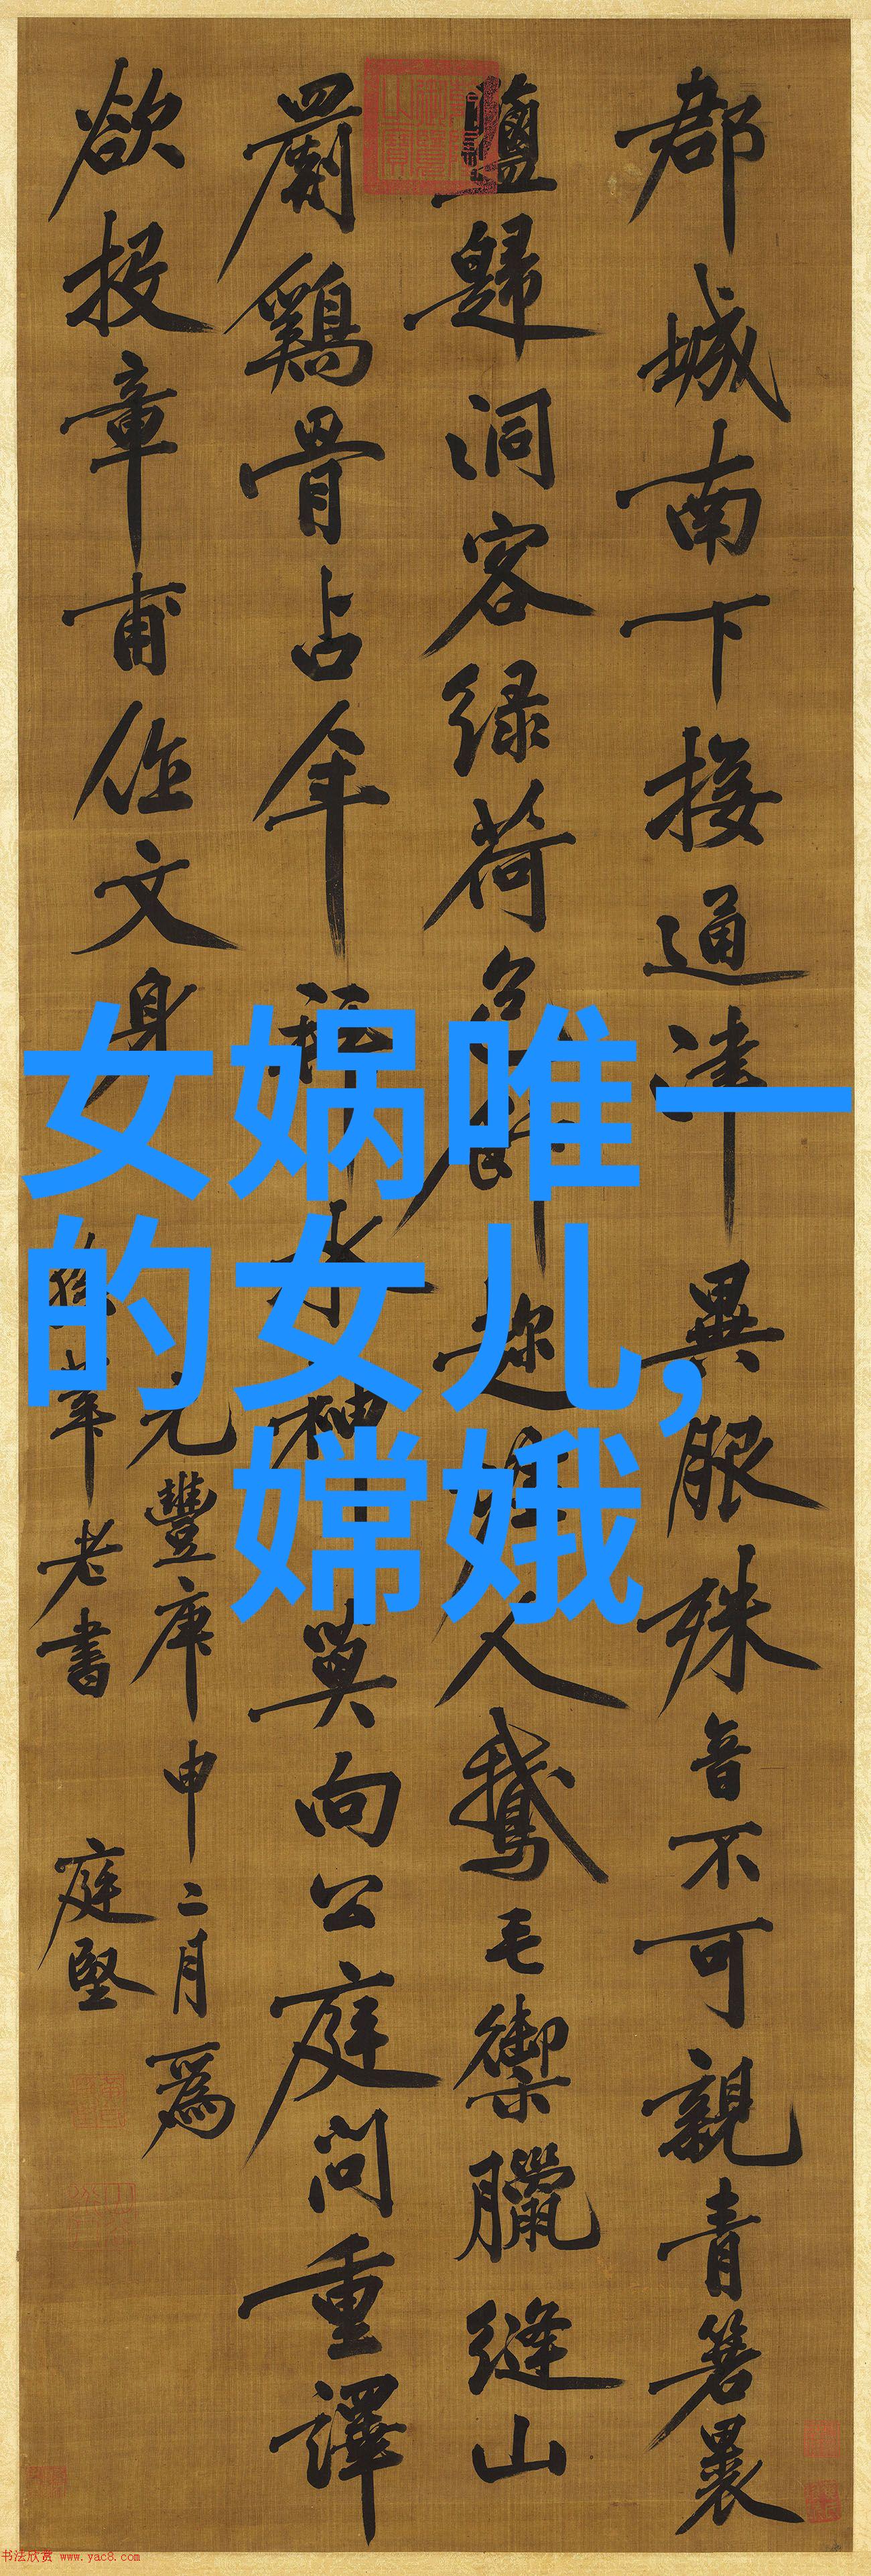 郡城南下接通津異服殊音不可親青箬裹
鹽歸洞客绿荷包飯趁人鵞毛御臘縫山
罽鷄骨占年拜水神莫向公庭問重譯
欲投章甫作文身
元豐庚申二月為
老書
庭堅
女娲唯一
的女儿,
嫦娥
书法欣赏 www.yac8.com